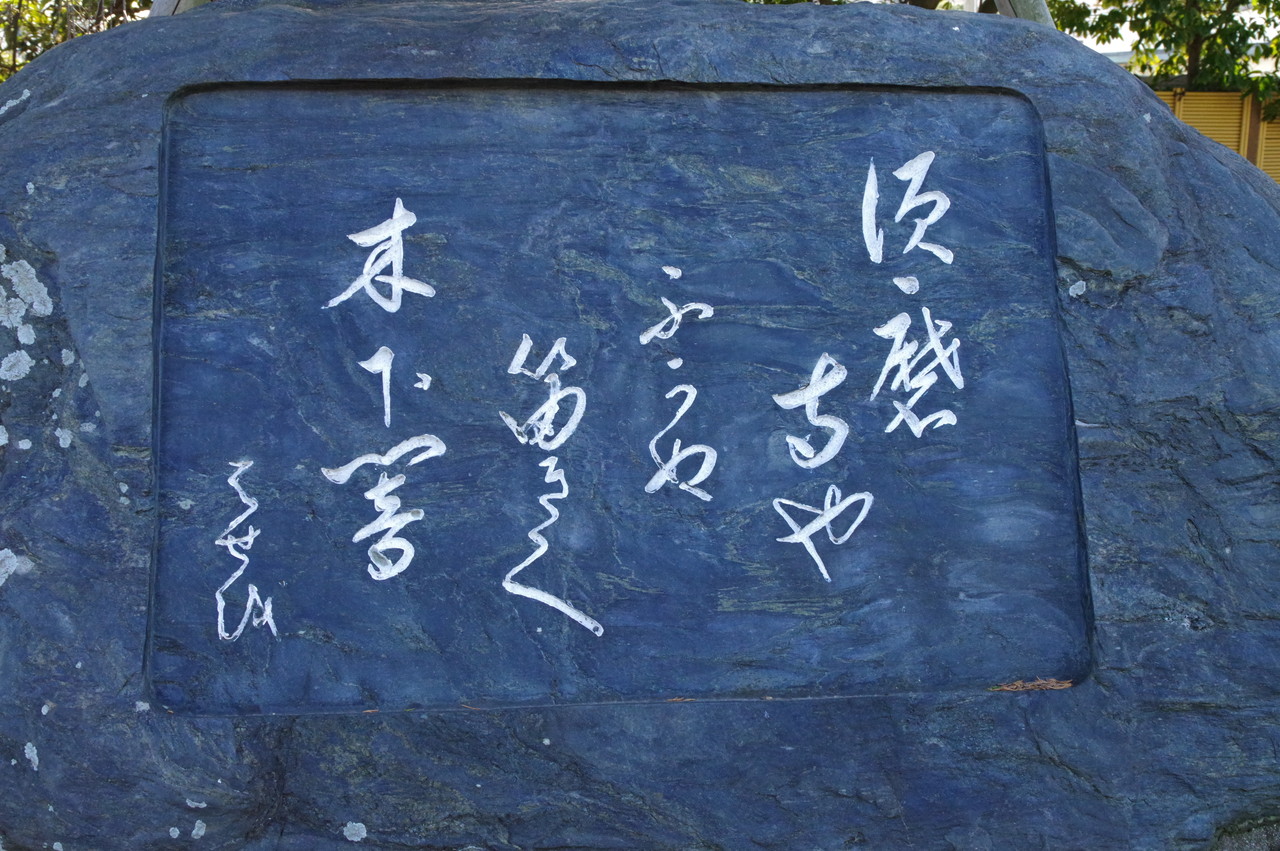 須磨
寺や
ふかぬ
笛きく
木下闇
はせを